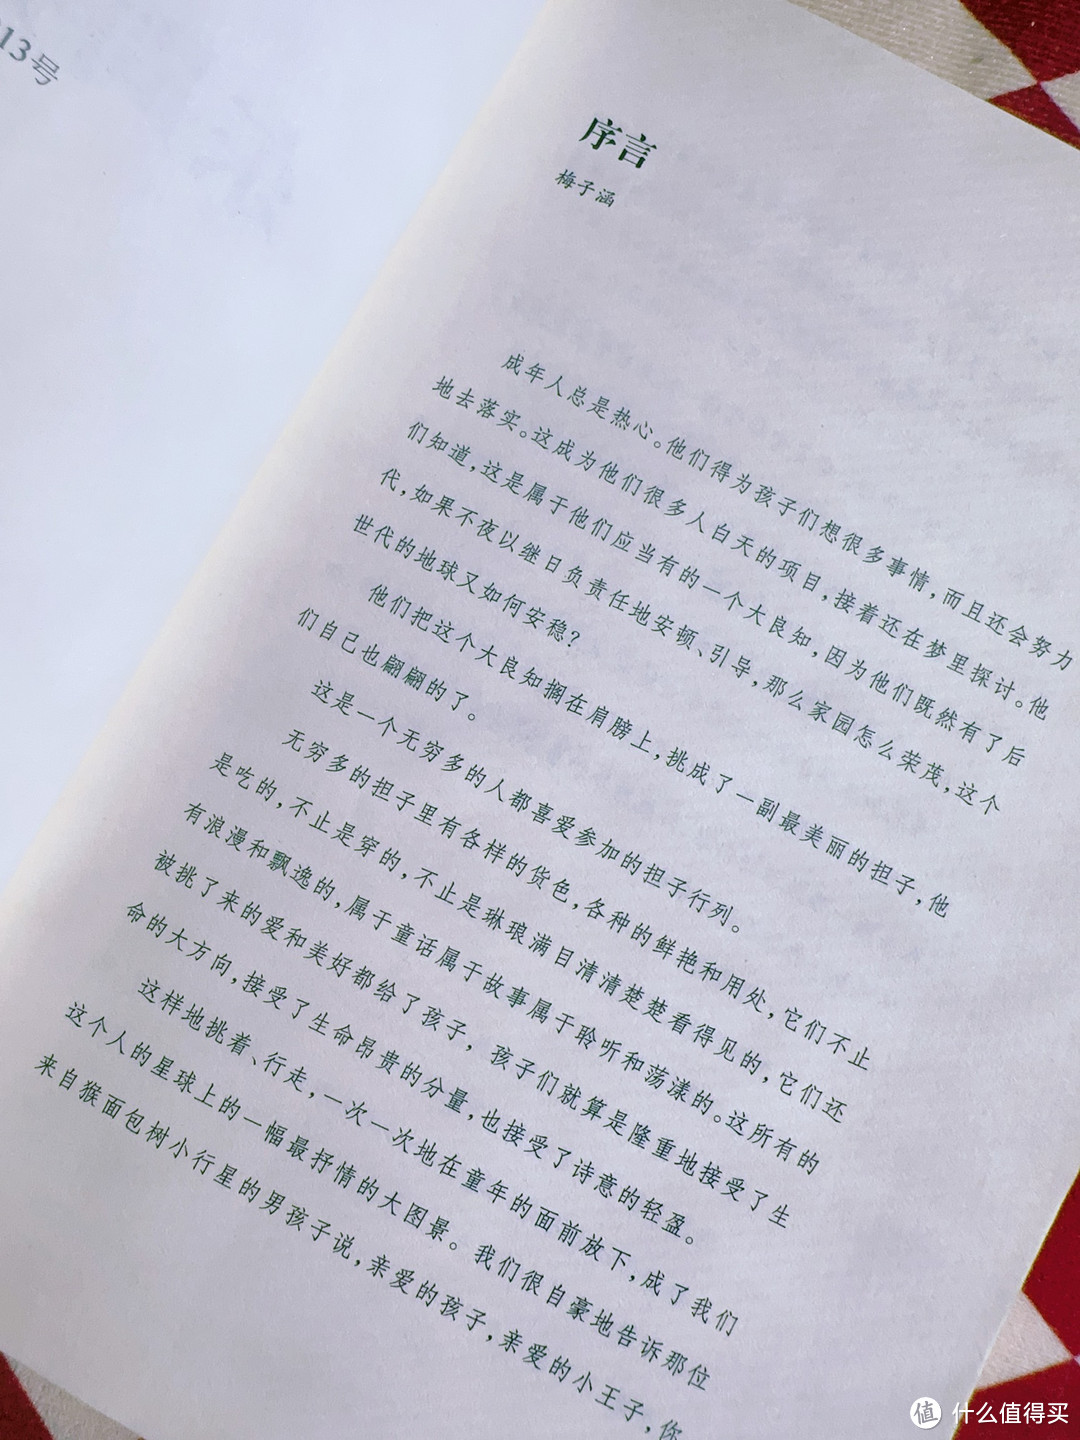 13号
序言
梅子涵
成年人总是热心。他们得为孩子们想很多事情，而且还会努力
地去落实。这成为他们很多人白天的项目，接着还在梦里探讨。他
们知道，这是属于他们应当有的一个大良知，因为他们既然有了后
代，如果不夜以继日负责任地安顿、引导，那么家园怎么荣茂，这个
世代的地球又如何安稳？
他们把这个大良知搁在肩膀上，挑成了一副最美丽的担子，他
们自己也翩翩的了。
这是一个无穷多的人都喜爱参加的担子行列。
无穷多的担子里有各样的货色，各种的鲜艳和用处，它们不止
是吃的，不止是穿的，不止是琳琅满目清清楚楚看得见的，它们还
有浪漫和飘逸的，属于童话属于故事属于聆听和荡漾的。这所有的
被挑了来的爱和美好都给了孩子，孩子们就算是隆重地接受了生
命的大方向，接受了生命昂贵的分量，也接受了诗意的轻盈。
这样地挑着、行走，一次一次地在童年的面前放下，成了我们
这个人的星球上的一幅最抒情的大图景。我们很自豪地告诉那位
来自猴面包树小行星的男孩子说，亲爱的孩子，亲爱的小王子，你
值 什么值得买